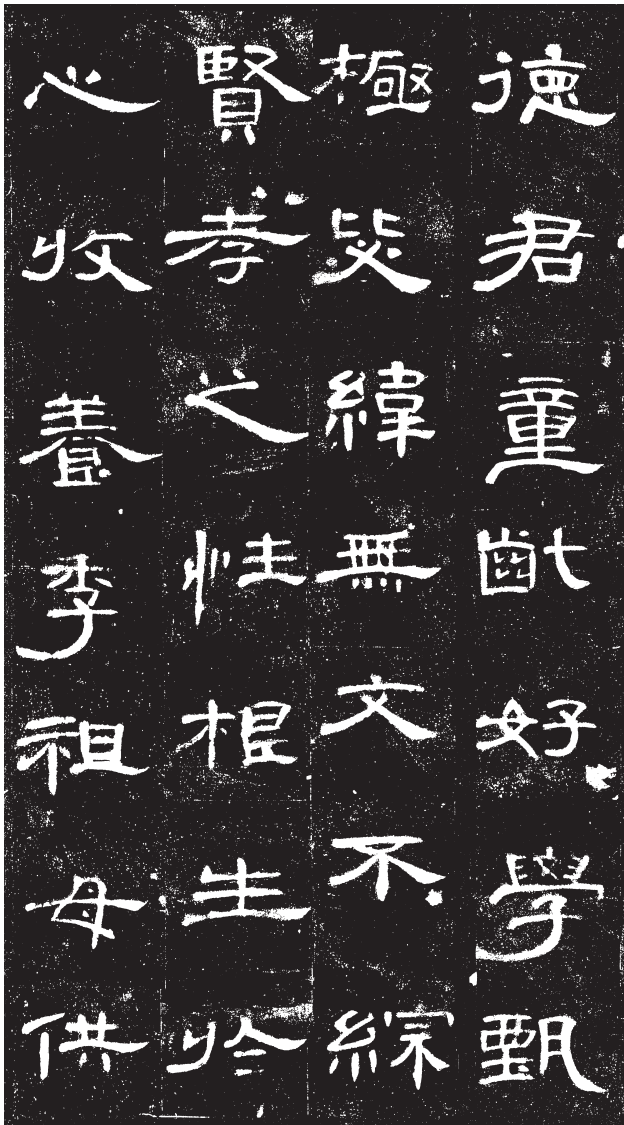 德君童齔好學甄
極毖緯無文不綜
賢孝之性根生於
心收養季祖母供